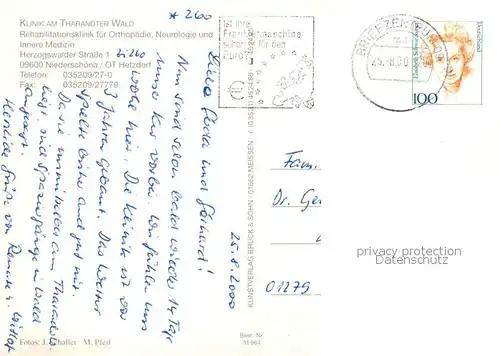 * 260
KLINIK AM THARANDTER WALD
Rehabilitationsklinik für Orthopädie, Neurologie und
Innere Medizin
Herzogswalder Straße 1 Zi 260
09600 Niederschöna / OT Hetzdorf
Telefon: 035209/27-0
Fax: 035209/27779
25.8.2000
Nun sind schon bald wieder 14 Tage
unsere Kur vorbei. Wir fühlen uns
wohl hier. Die Klinik ist vor
7 Jahren gebaut. Das Wetter
spielte bisher auch gut mit.
Da sie unmittelbar am Tharandter
liegt, sind Spaziergänge im Wald
angesagt.
Herzliche Grüße von Renate u.
Fotos: J. Schaller M. Pfeil
Best. Nr.
KUNSTVERLAG BRÜCK & SOHN · 01662 MEISSEN
Ist Ihre
Frankiermaschine
schon fit für den
Euro?
€
BRIEFZENTRUM
25.-8.00
Deutschland
Elisabeth Schwarzhaupt
100
Fam.
Dr. Ge
01279
privacy protection
Datenschutz